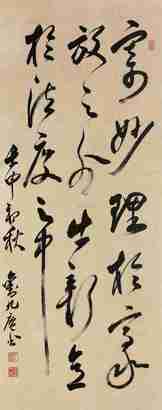 寄妙理於豪
放之外出新意
於法度之中
壬申初秋
劉九庵书